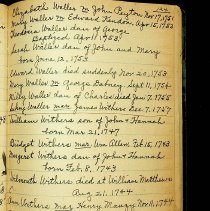 Elizabeth Waller m John Peyton Nov. 17, 1751
Mary Waller m Edward Kendon Apr. 15, 1752
Theodosia Waller dau of George
Baptized Apr. 11, 1753
Sarah Waller dau of John and Mary
born June 12, 1753
Edward Waller died suddenly Nov. 20, 1753
Mary Waller m George Babney Sept. 11, 1754
Milley Waller dau of Charles died Jan. 7, 1755
Johny Waller mar. James Withers Dec. 7, 1757
William Withers son of John & Hannah
born Mar 21, 1747
Bridget Withers mar. Wm Allen Feb. 15, 1743
Margaret Withers dau of John & Hannah
born Feb. 8, 1743
Withers died at William Matthews
Aug. 21, 1744
Ann Withers mar. Henry Nov. 11, 1744